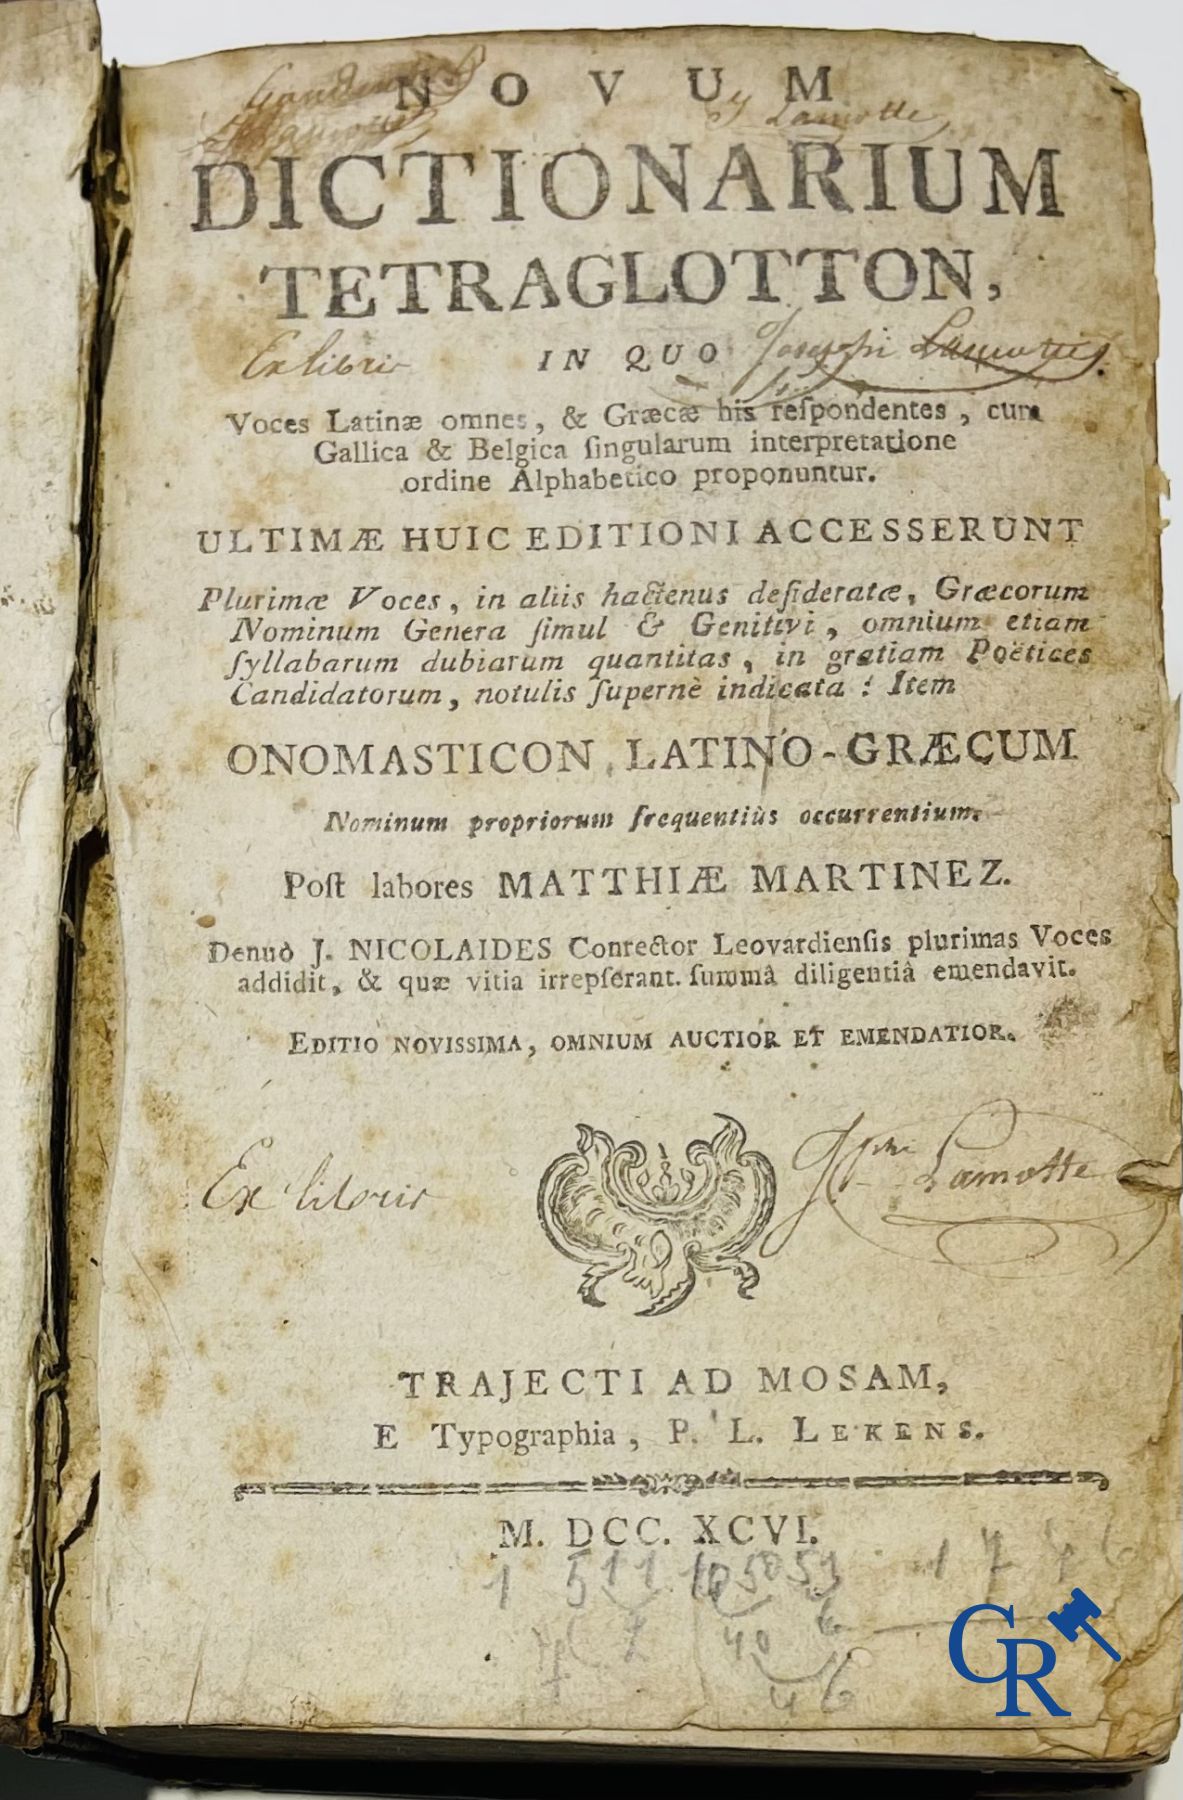 NOVUM
J Lamotte
DICTIONARIUM
TETRAGLOTTON,
Ex libris
IN QUO
Josephi Lamotte
Voces Latinæ omnes, & Græcæ his reſpondentes, cum
Gallica & Belgica ſingularum interpretatione
ordine Alphabetico proponuntur.
ULTIMÆ HUIC EDITIONI ACCESSERUNT
Plurimæ Voces, in aliis hactenus deſideratæ, Græcorum
Nominum Genera ſimul & Genitivi, omnium etiam
ſyllabarum dubiarum quantitas, in gratiam Poëtices
Candidatorum, notulis ſupernè indicata: Item
ONOMASTICON LATINO-GRÆCUM
Nominum propriorum frequentiùs occurrentium.
Poſt labores MATTHIÆ MARTINEZ.
Denuò J. NICOLAIDES Conrector Leovardienſis plurimas Voces
addidit, & quæ vitia irrepſerant. ſummâ diligentiâ emendavit.
EDITIO NOVISSIMA, OMNIUM AUCTIOR ET EMENDATIOR.
Ex libris
Jphi Lamotte
TRAJECTI AD MOSAM,
E Typographia, P. L. LEKENS.
M. DCC. XCVI.
40 6
46
CR